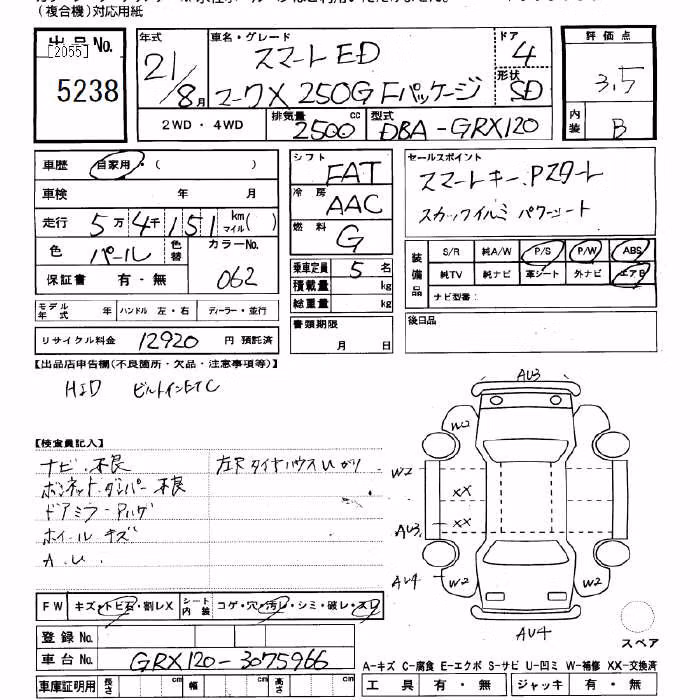 (複合機)対応用紙
出品No. [2055] 5238
年式 21/8月
車名・グレード スマートED
マークX 250G Fパッケージ
ドア 4
形状 SD
評価点 3.5
内装 B
2WD ・ 4WD 排気量 2500 cc 型式 DBA-GRX120
車歴 自家用・( )
車検 年 月
走行 5万4千151 km マイル( )
色 パール 色替 カラーNo. 062
保証書 有・無
シフト FAT
冷房 AAC
燃料 G
乗車定員 5 名
積載量 kg
総重量 kg
書類期限 月 日
セールスポイント
スマートキー、Pスタート
パワーシート
装備品 S/R 純A/W P/S P/W ABS
純TV 純ナビ 革シート 外ナビ エアB
ナビ型番:
後日品
モデル年式 年 ハンドル 左・右 ディーラー・並行
リサイクル料金 12920 円 預託済
【出品店申告欄(不良箇所・欠品・注意事項等)】
HID ビルトインETC
【検査員記入】
ナビ.不良
ボンネットダンパー不良
ドアミラー
ホイール キズ
A.U.
FW キズ・トビ石・割レX シート内装 コゲ・穴・汚レ・シミ・破レ・スレ
登録No.
車台No. GRX120-3075966
車庫証明用 長さ cm 幅 cm 高さ cm
AU3
W2
W2
XX
XX
AU3
AU4
W2
W2
AU4
スペア
A-キズ C-腐食 E-エクボ S-サビ U-凹ミ W-補修 XX-交換済
工具 有・無 ジャッキ 有・無